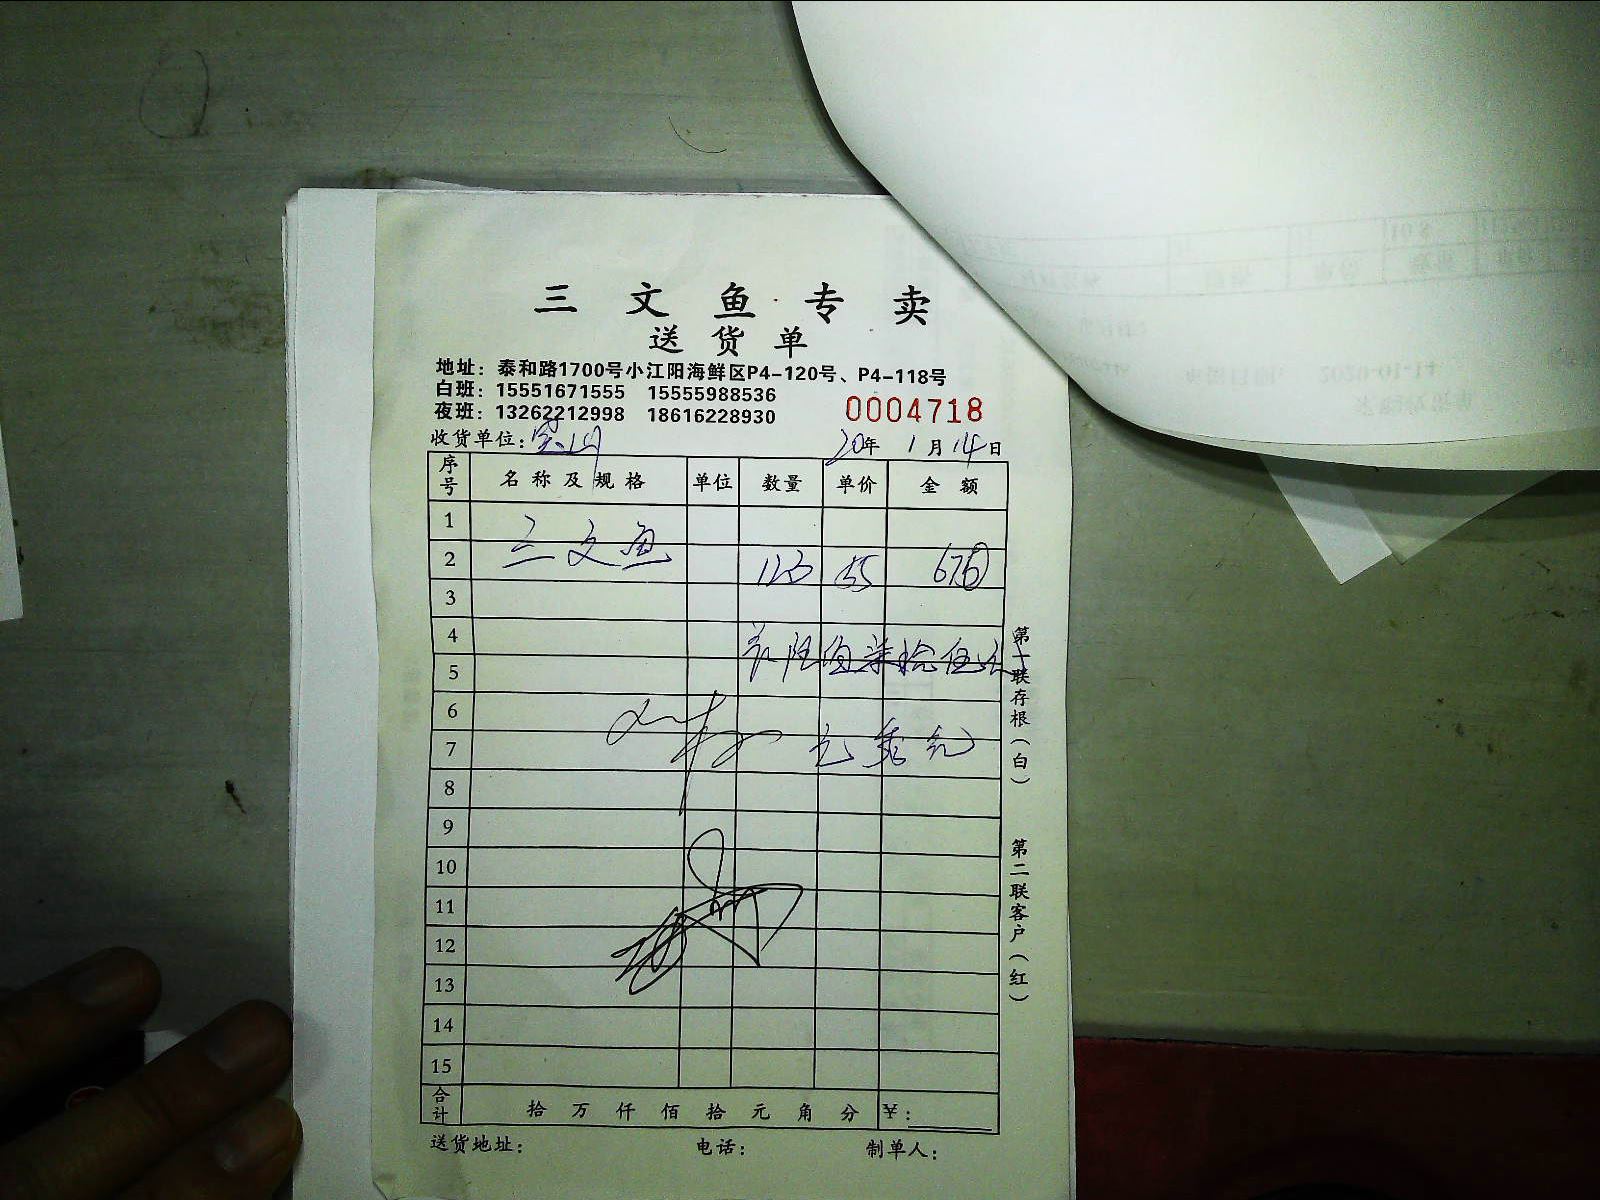 三文鱼专卖
送货单
地址：泰和路1700号小江阳海鲜区P4-120号、P4-118号
白班：15551671555 15555988536
夜班：13262212998 18616228930
0004718
收货单位：
20年 1月14日
序号 名称及规格 单位 数量 单价 金额
1
三文鱼
2 55
3
4
陆佰柒拾伍元
5
6
7
8
9
10
11
12
13
14
15
合计 拾 万 仟 佰 拾 元 角 分 ¥：
送货地址： 电话： 制单人：
第一联存根（白）
第二联客户（红）